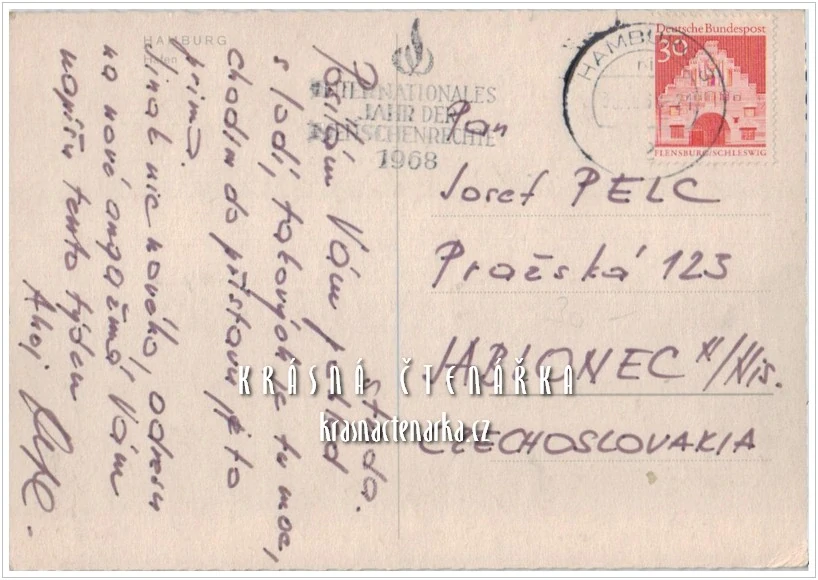 HAMBURG
Hafen
INTERNATIONALES
JAHR DER
MENSCHENRECHTE
1968
HAMBURG
Deutsche Bundespost
30
FLENSBURG/SCHLESWIG
Posílám Vám pohled
s lodí, takových je tu moc,
chodím do přístavu je to
prima.
Jinak nic nového, adresu
na nové angažmá Vám
napíšu tento týden
Ahoj
Pan
Josef PELC
Pražská 123
JABLONEC N/Nis.
CZECHOSLOVAKIA
KRÁSNÁ ČTENÁŘKA
krasnactenarka.cz